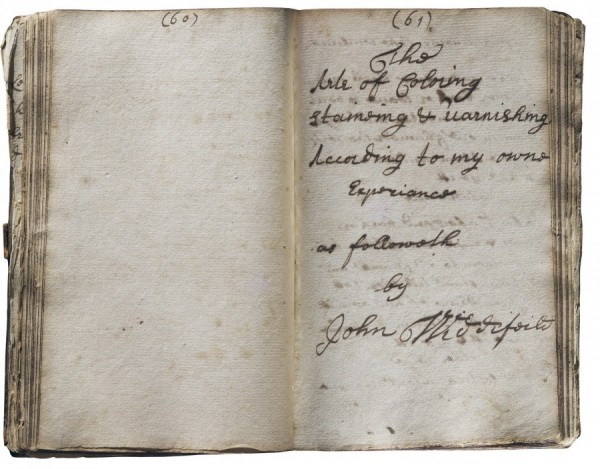 (60)
(61)
The
Arte of Coloring
Staineing & Varnishing
According to my owne
Experiance
as followeth
by
John Widdifeild